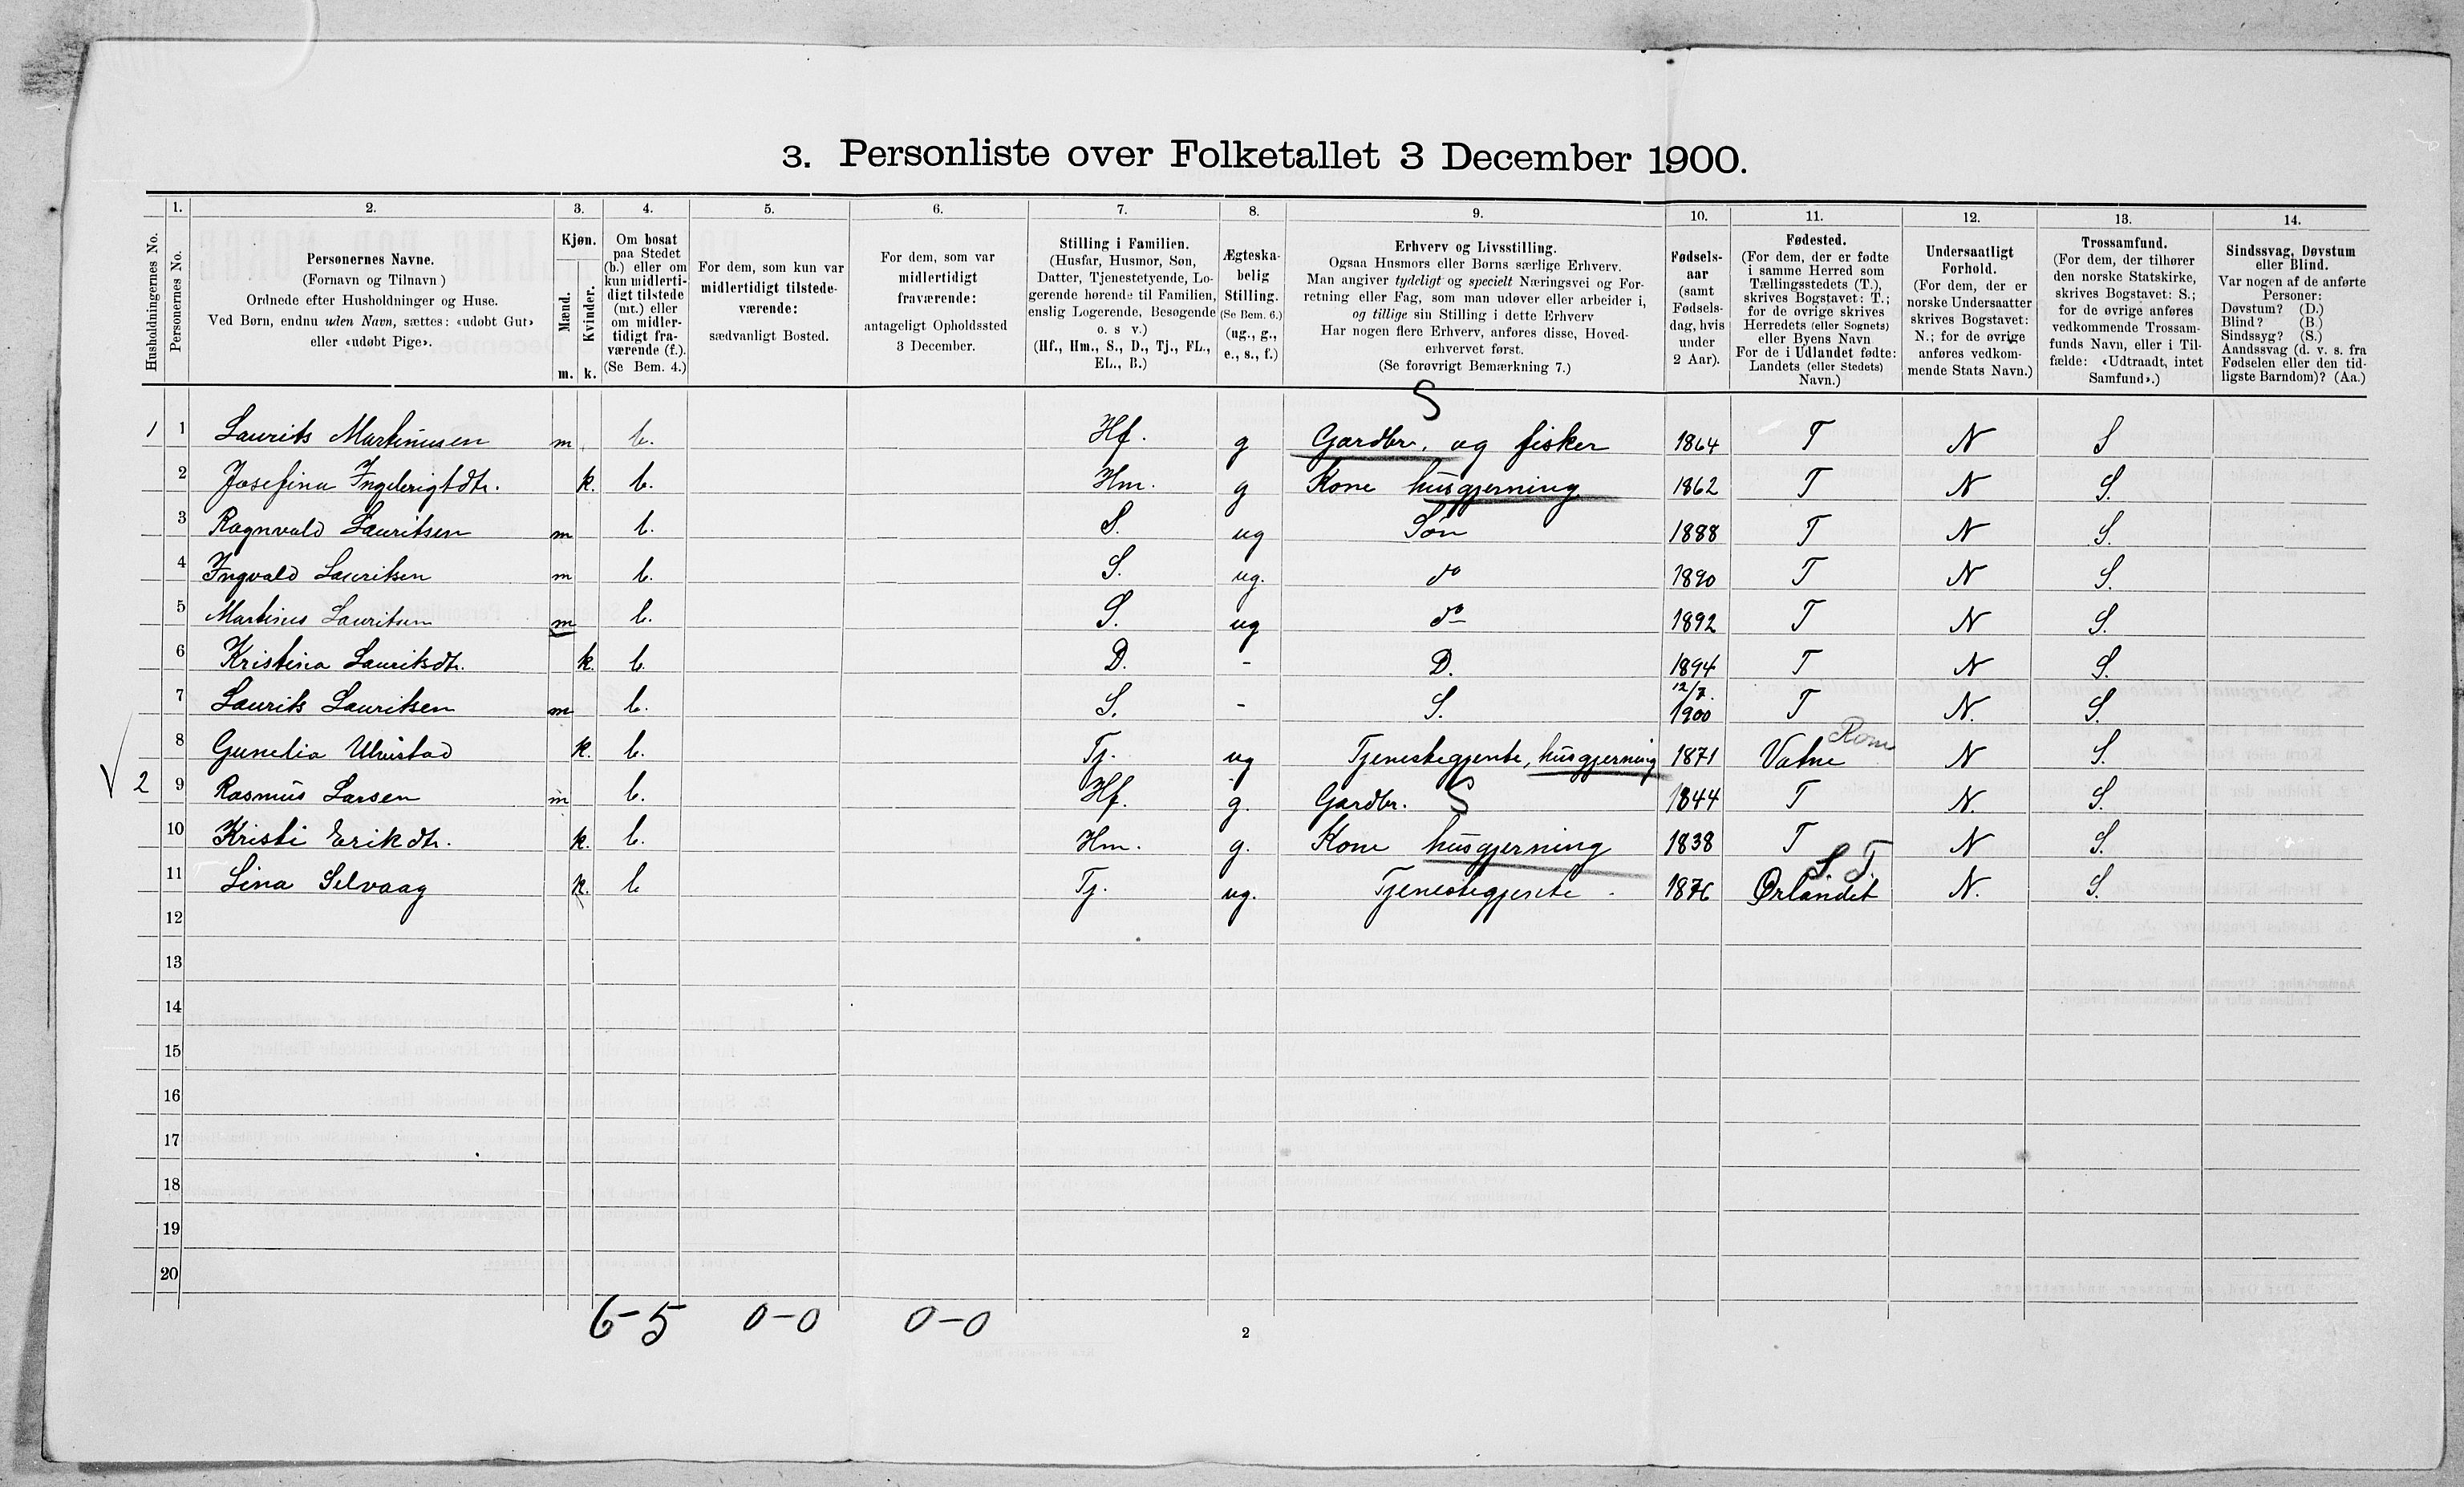 3. Personliste over Folketallet 3 December 1900.
1. 2. 3. 4. 5. 6. 7. 8. 9. 10. 11. 12. 13. 14.
Husholdningernes No.
Personernes No.
Personernes Navne.
(Fornavn og Tilnavn)
Ordnede efter Husholdninger og Huse.
Ved Børn, endnu uden Navn, sættes: «udøbt Gut»
eller «udøbt Pige».
Kjøn.
Mænd.
Kvinder.
m. k.
Om bosat
paa Stedet
(b.) eller om
kun midlerti-
digt tilstede
(mt.) eller
om midler-
tidigt fra-
værende (f.).
(Se Bem. 4.)
For dem, som kun var
midlertidigt tilstede-
værende:
sædvanligt Bosted.
For dem, som var
midlertidigt
fraværende:
antageligt Opholdssted
3 December.
Stilling i Familien.
(Husfar, Husmor, Søn,
Datter, Tjenestetyende, Lo-
gerende hørende til Familien,
enslig Logerende, Besøgende
o. s v.)
(Hf., Hm., S., D., Tj., FL.,
EL., B.)
Ægteska-
belig
Stilling.
(Se Bem. 6.)
(ug., g.,
e., s., f.)
Erhverv og Livsstilling.
Ogsaa Husmors eller Børns særlige Erhverv.
Man angiver tydeligt og specielt Næringsvei og For-
retning eller Fag, som man udøver eller arbeider i,
og tillige sin Stilling i dette Erhverv
Har nogen flere Erhverv, anføres disse, Hoved-
erhvervet først.
(Se forøvrigt Bemærkning 7.)
Fødsels-
aar
(samt
Fødsels-
dag, hvis
under
2 Aar).
Fødested.
(For dem, der er fødte
i samme Herred som
Tællingsstedets (T.),
skrives Bogstavet: T.;
for de øvrige skrives
Herredets (eller Sognets)
eller Byens Navn
For de i Udlandet fødte:
Landets (eller Stedets)
Navn.)
Undersaatligt
Forhold.
(For dem, der er
norske Undersaatter
skrives Bogstavet:
N.; for de øvrige
anføres vedkom-
mende Stats Navn.)
Trossamfund.
(For dem, der tilhører
den norske Statskirke,
skrives Bogstavet: S.;
for de øvrige anføres
vedkommende Trossam-
funds Navn, eller i Til-
fælde: «Udtraadt, intet
Samfund».)
Sindssvag, Døvstum
eller Blind.
Var nogen af de anførte
Personer:
Døvstum? (D.)
Blind? (B.)
Sindssyg? (S.)
Aandssvag (d. v. s. fra
Fødselen eller den tid-
ligste Barndom)? (Aa.)
S
1 1 Laurits Martinusen m b. Hf. g Gardbr. og fisker 1864 T N S
2 Josefina Ingebrigtdtr. k. b. Hm. g Kone husgjerning 1862 T N S.
3 Ragnvald Lauritsen m b. S. ug Søn 1888 T N S.
4 Ingvald Lauritsen m b. S. ug. do 1890 T N S.
5 Martinus Lauritsen m b. S. ug do 1892 T N S.
6 Kristina Lauritsdtr. k. b. D. - D. 1894 T N S.
7 Laurits Lauritsen m b. S. - S. 12/7. 1900 T N. S.
8 Gunelia Ulvestad k. b. Tj. ug Tjenestegjente, husgjerning 1871 Vatne Rom N S.
2 9 Rasmus Larsen m b. Hf. g. Gardbr. S 1844 T N. S.
10 Kristi Erikdtr. k. b. Hm. g. Kone husgjerning 1838 T N S.
11 Lina Selvaag k. b Tj. ug. Tjenestegjente 1876 Ørlandet S T N. S.
12
13
14
15
16
17
18
19
20
6-5 0-0 0-0
2